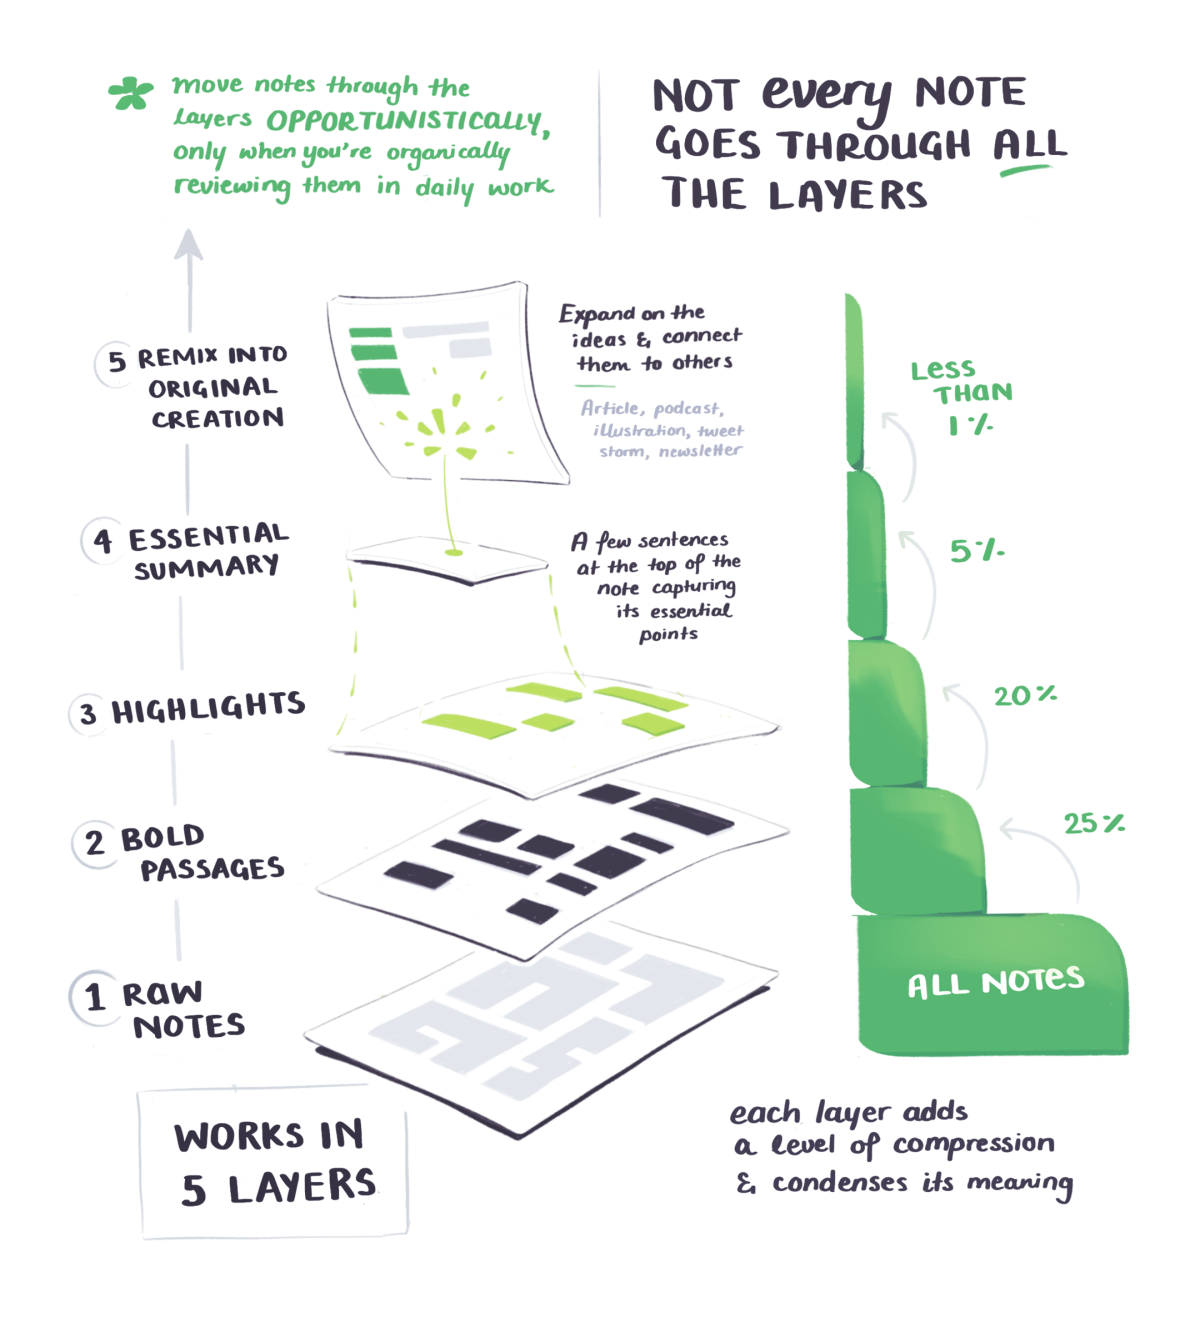 move notes through the
layers OPPORTUNISTICALLY,
only when you're organically
reviewing them in daily work
NOT every NOTE
GOES THROUGH ALL
THE LAYERS
5 REMIX INTO
ORIGINAL
CREATION
Expand on the
ideas & connect
them to others
Article, podcast,
illustration, tweet
storm, newsletter
LESS
THAN
1%
4 ESSENTIAL
SUMMARY
A few sentences
at the top of the
note capturing
its essential
points
5%
3 HIGHLIGHTS
20%
2 BOLD
PASSAGES
25%
1 RAW
NOTES
ALL NOTES
WORKS IN
5 LAYERS
each layer adds
a level of compression
& condenses its meaning